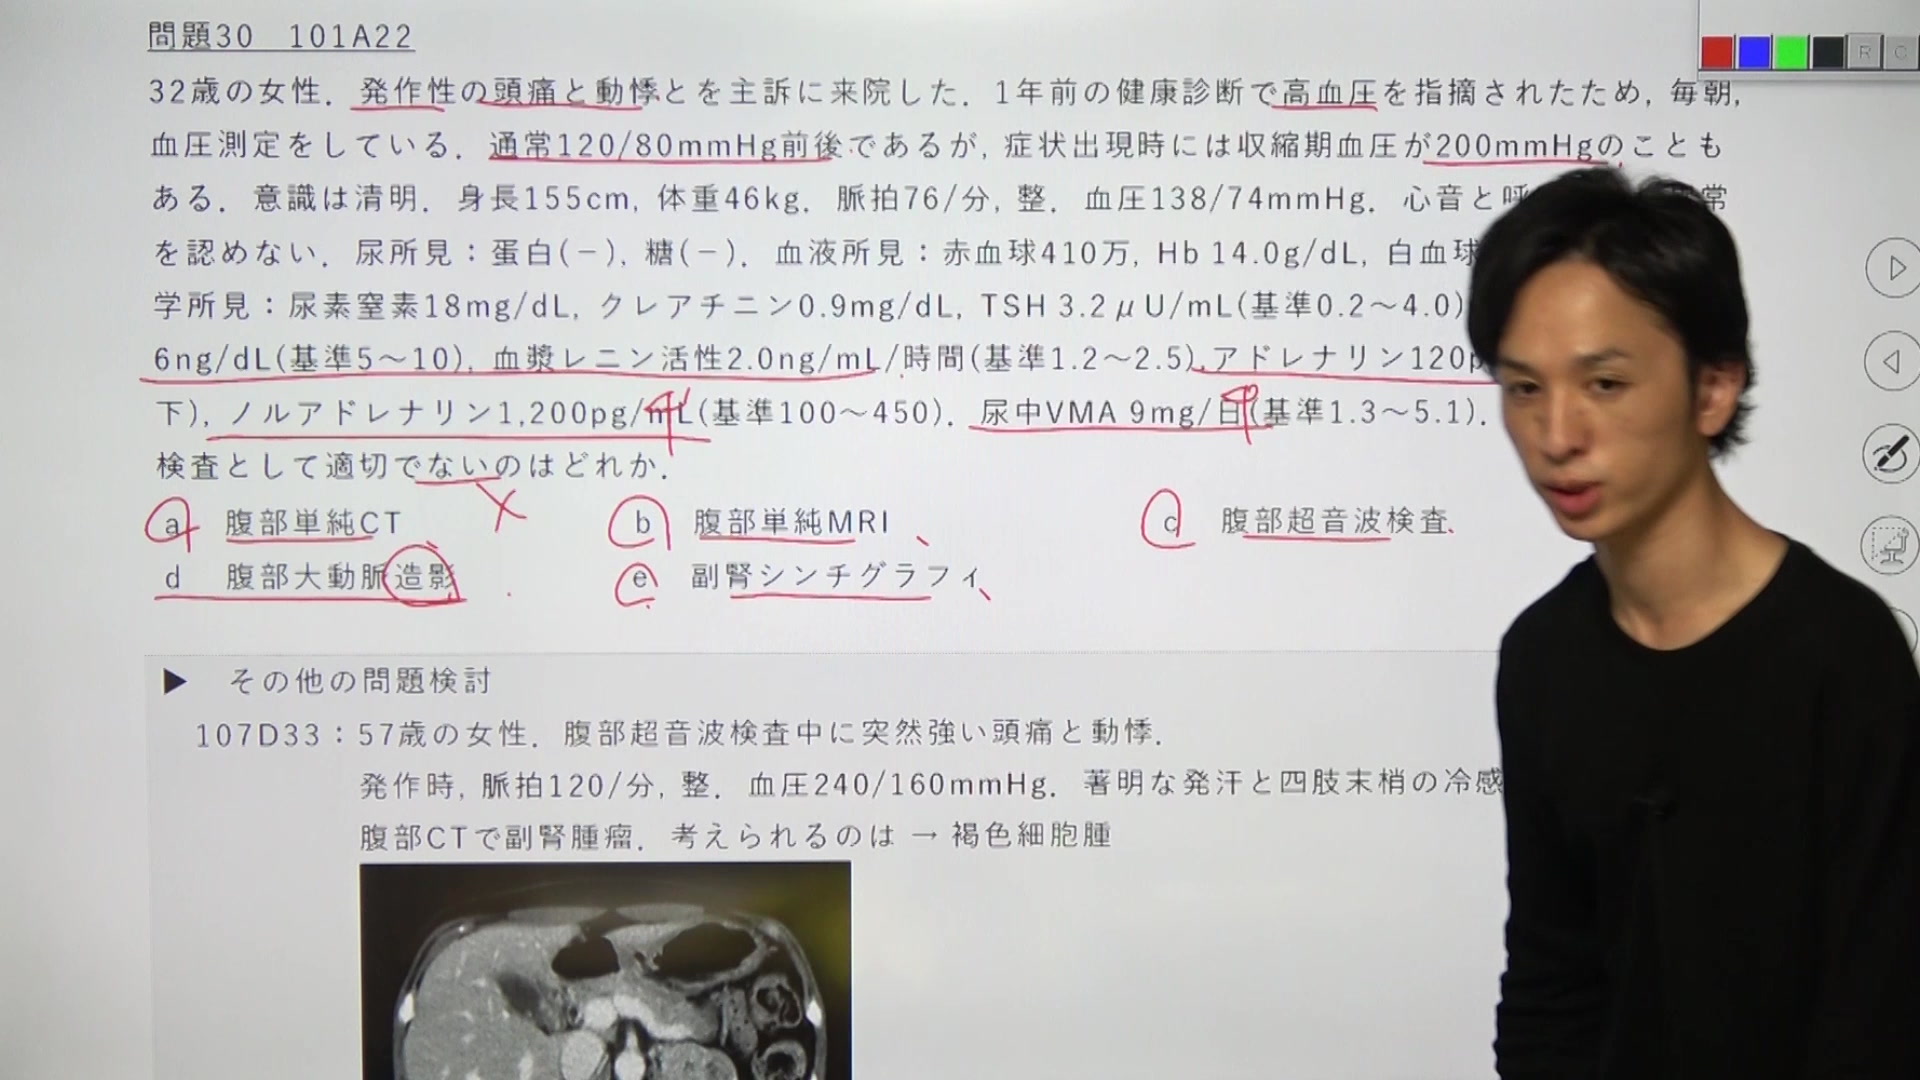 問題30 101A22
R C
32歳の女性．発作性の頭痛と動悸とを主訴に来院した．1年前の健康診断で高血圧を指摘されたため, 毎朝,
血圧測定をしている．通常120/80mmHg前後であるが, 症状出現時には収縮期血圧が200mmHgのことも
ある．意識は清明．身長155cm, 体重46kg．脈拍76/分, 整．血圧138/74mmHg．心音と呼 常
を認めない．尿所見：蛋白(－), 糖(－)．血液所見：赤血球410万, Hb 14.0g/dL, 白血球
学所見：尿素窒素18mg/dL, クレアチニン0.9mg/dL, TSH 3.2μU/mL(基準0.2～4.0)
6ng/dL(基準5～10), 血漿レニン活性2.0ng/mL/時間(基準1.2～2.5), アドレナリン120p
下), ノルアドレナリン1,200pg/mL(基準100～450)．尿中VMA 9mg/日(基準1.3～5.1)．
検査として適切でないのはどれか．
a 腹部単純CT b 腹部単純MRI c 腹部超音波検査
d 腹部大動脈造影 e 副腎シンチグラフィ
▶ その他の問題検討
107D33：57歳の女性．腹部超音波検査中に突然強い頭痛と動悸．
発作時, 脈拍120/分, 整．血圧240/160mmHg．著明な発汗と四肢末梢の冷感
腹部CTで副腎腫瘤．考えられるのは → 褐色細胞腫